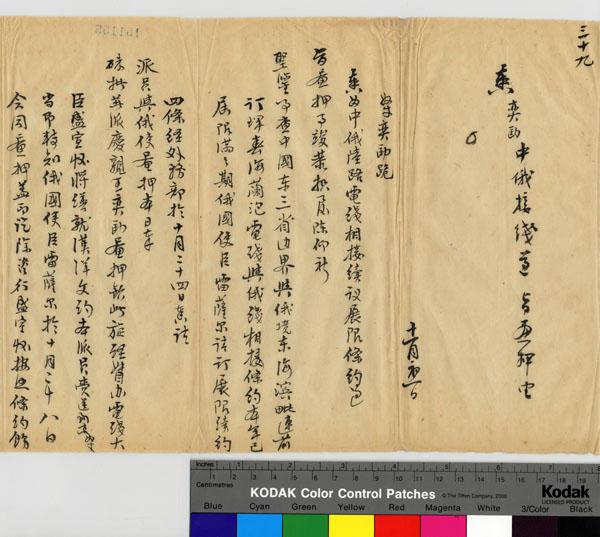 三十九
奏 奕劻 中俄接綫遵旨畫押由
十一月初一日
奴才奕劻跪
奏為中俄陸路電綫相接續議展限條約遵
旨畫押事竣恭摺具陳仰祈
聖鑒事查中國東三省邊界與俄境東海濱毗連前
訂琿春海蘭泡電綫與俄綫相接條約本年已
届限滿之期俄國使臣雷薩尔請訂展限續約
四條經外務部於十月二十四日奏請
派員與俄使畫押本日奉
硃批著派慶親王奕劻畫押欽此旋經督办電綫大
臣盛宣懷將繕就漢洋文約本派員賫送前來奴才
當即轉知俄國使臣雷薩尔於十月二十八日
会同畫押蓋印訖除咨行盛宣懷按照條約飭
151135
Inches
Centimetres
KODAK Color Control Patches
© The Tiffen Company, 2000
Kodak
LICENSED PRODUCT
Blue Cyan Green Yellow Red Magenta White 3/Color Black